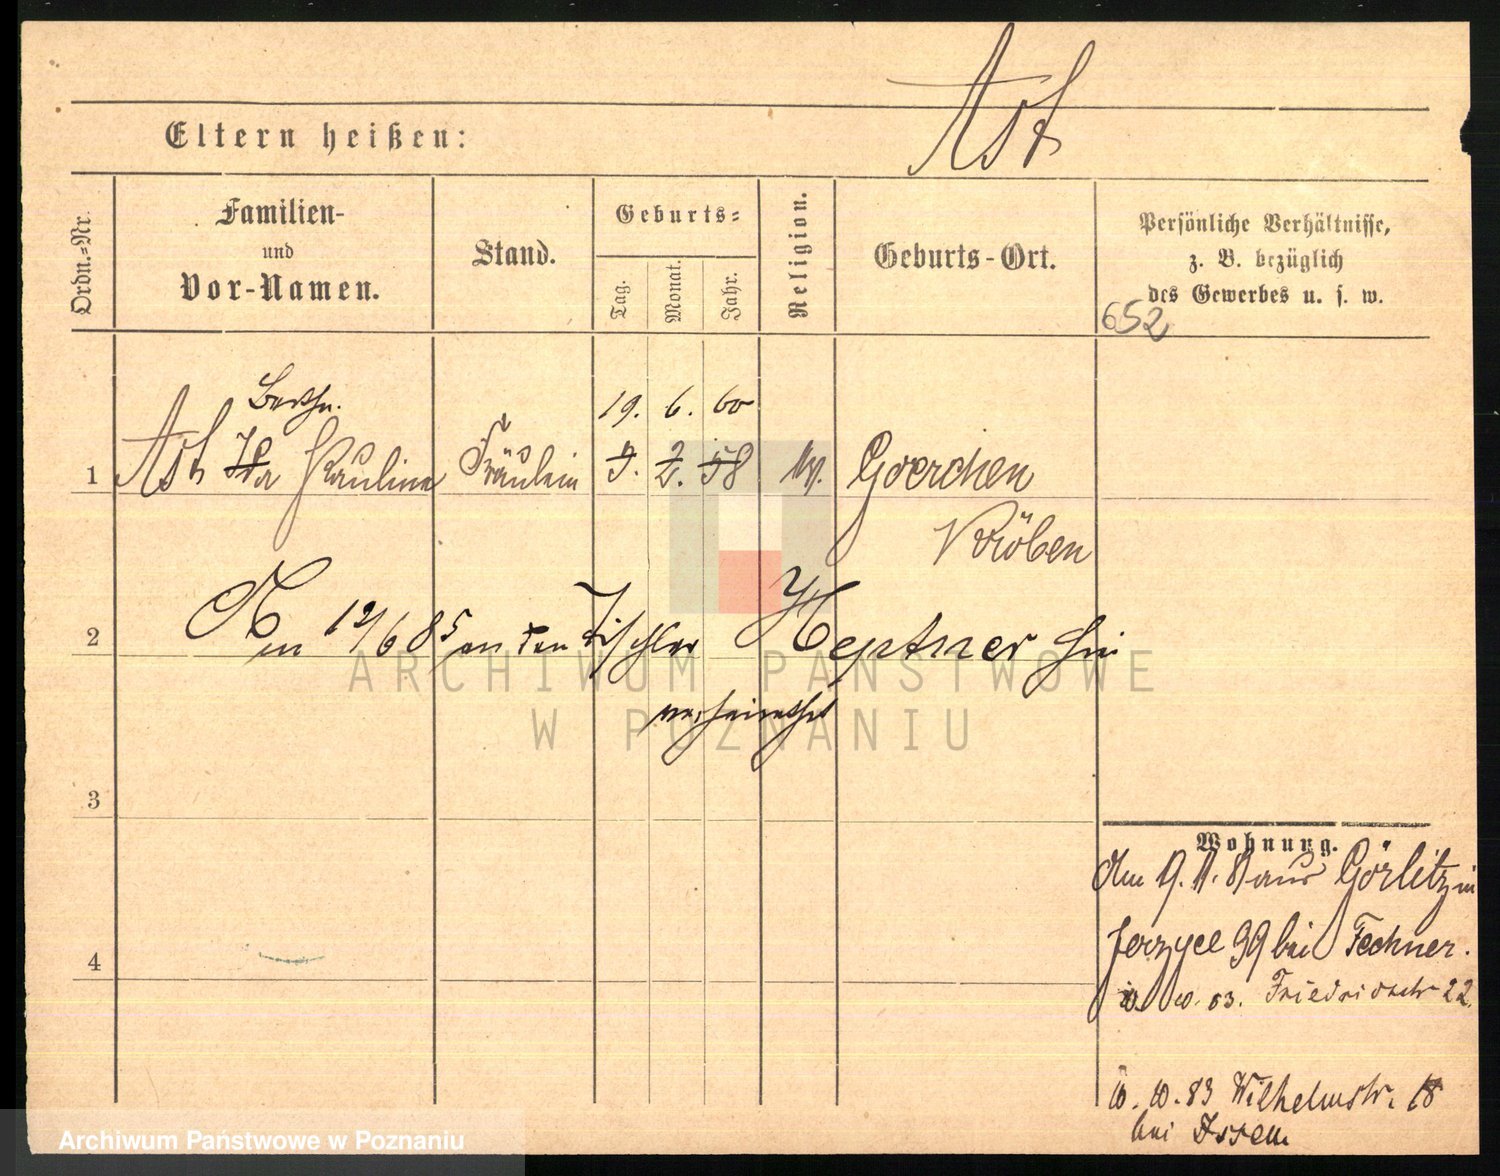 Ast
Eltern heißen:
Ordn.=Nr.
Familien-
und
Vor-Namen.
Stand.
Geburts=
Tag.
Monat.
Jahr.
Religion.
Geburts-Ort.
Persönliche Verhältnisse,
z. B. bezüglich
des Gewerbes u. s. w.
652
Bertha. 19. 6. 60
1 Ast Ida Pauline Fräulein 9. 2. 58 Goerchen
Kröben
2 Am 12/6 85 an den Tischler Heptner hier
verheirathet
ARCHIWUM PAŃSTWOWE
W POZNANIU
3
Wohnung.
Am 9. 11. 81 aus Görlitz in
Jerzyce 99 bei Fechner.
83. Friedrichstr 22
4
10. 10. 83 Wilhelmstr. 18
bei
Archiwum Państwowe w Poznaniu